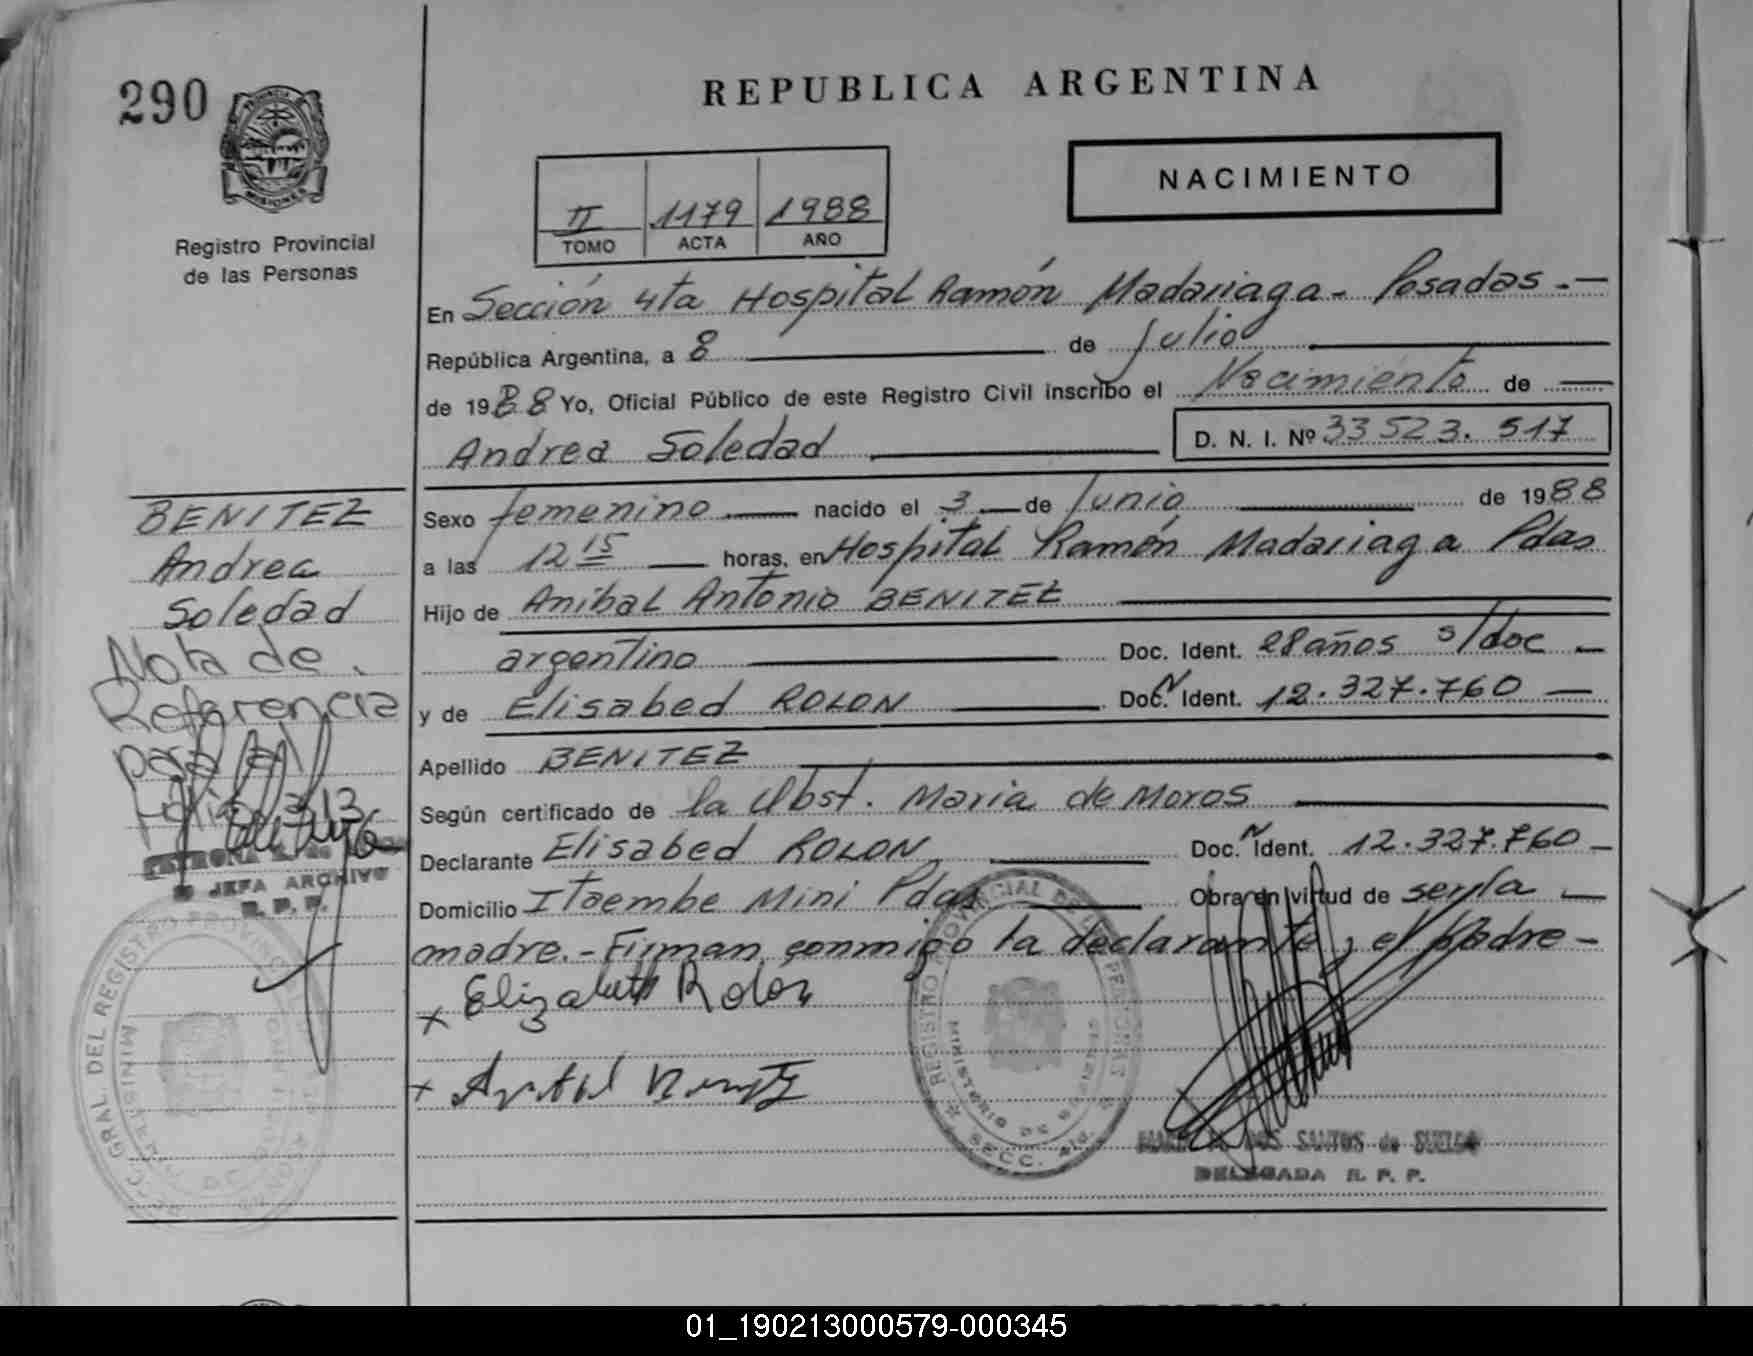 290
REPUBLICA ARGENTINA
NACIMIENTO
II 1179 1988
TOMO ACTA AÑO
Registro Provincial
de las Personas
En Sección 4ta Hospital Ramón Madariaga - Posadas.-
República Argentina, a 8 de Julio
de 1988 Yo, Oficial Público de este Registro Civil inscribo el Nacimiento de
Andrea Soledad D. N. I. Nº 33 523. 517
BENITEZ
Andrea
Soledad
Nota de
Referencia
para el
Folio 313
JEFA ARCHIVO
R. P. P.
Sexo femenino nacido el 3 de Junio de 1988
a las 12 15 horas, en Hospital Ramón Madariaga Pdas
Hijo de Anibal Antonio BENITEZ
argentino Doc. Ident. 28 años s/doc
y de Elisabed ROLON Doc. Ident. 12.327.760
Apellido BENITEZ
Según certificado de la Obst. Maria de Moros
Declarante Elisabed ROLON Doc. Ident. 12.327.760
Domicilio Itaembe Mini Pdas Obra en virtud de ser la
madre.- Firman conmigo la declarante y el Padre -
x Elizabeth Rolon
x
REGISTRO PROVINCIAL DE LAS PERSONAS
MINISTERIO DE GOBIERNO
SECC. 4ta.
DOS SANTOS de
DELEGADA R. P. P.
GRAL. DEL REGISTRO PROVINCIAL
01_190213000579-000345